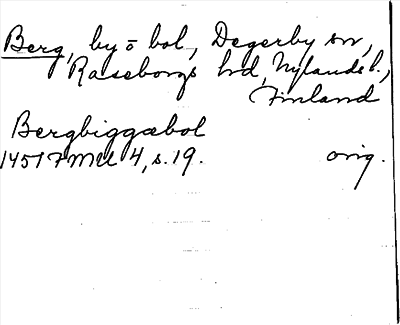 Berg, by o bol, Degerby sn,
Raseborgs hd, Nylands l.,
Finland
Bergbiggæbol
1451 FMU 4, s. 19. orig.